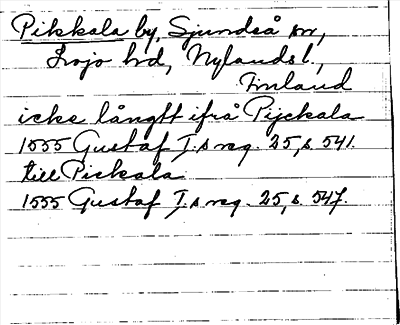 Pikkala by, Sjundeå sn,
Lojo hd, Nylands l.,
Finland
icke långtt ifrå Pijckala
1555 Gustaf I.s reg. 25, s. 541.
till Pickala
1555 Gustaf I.s reg. 25, s. 547.